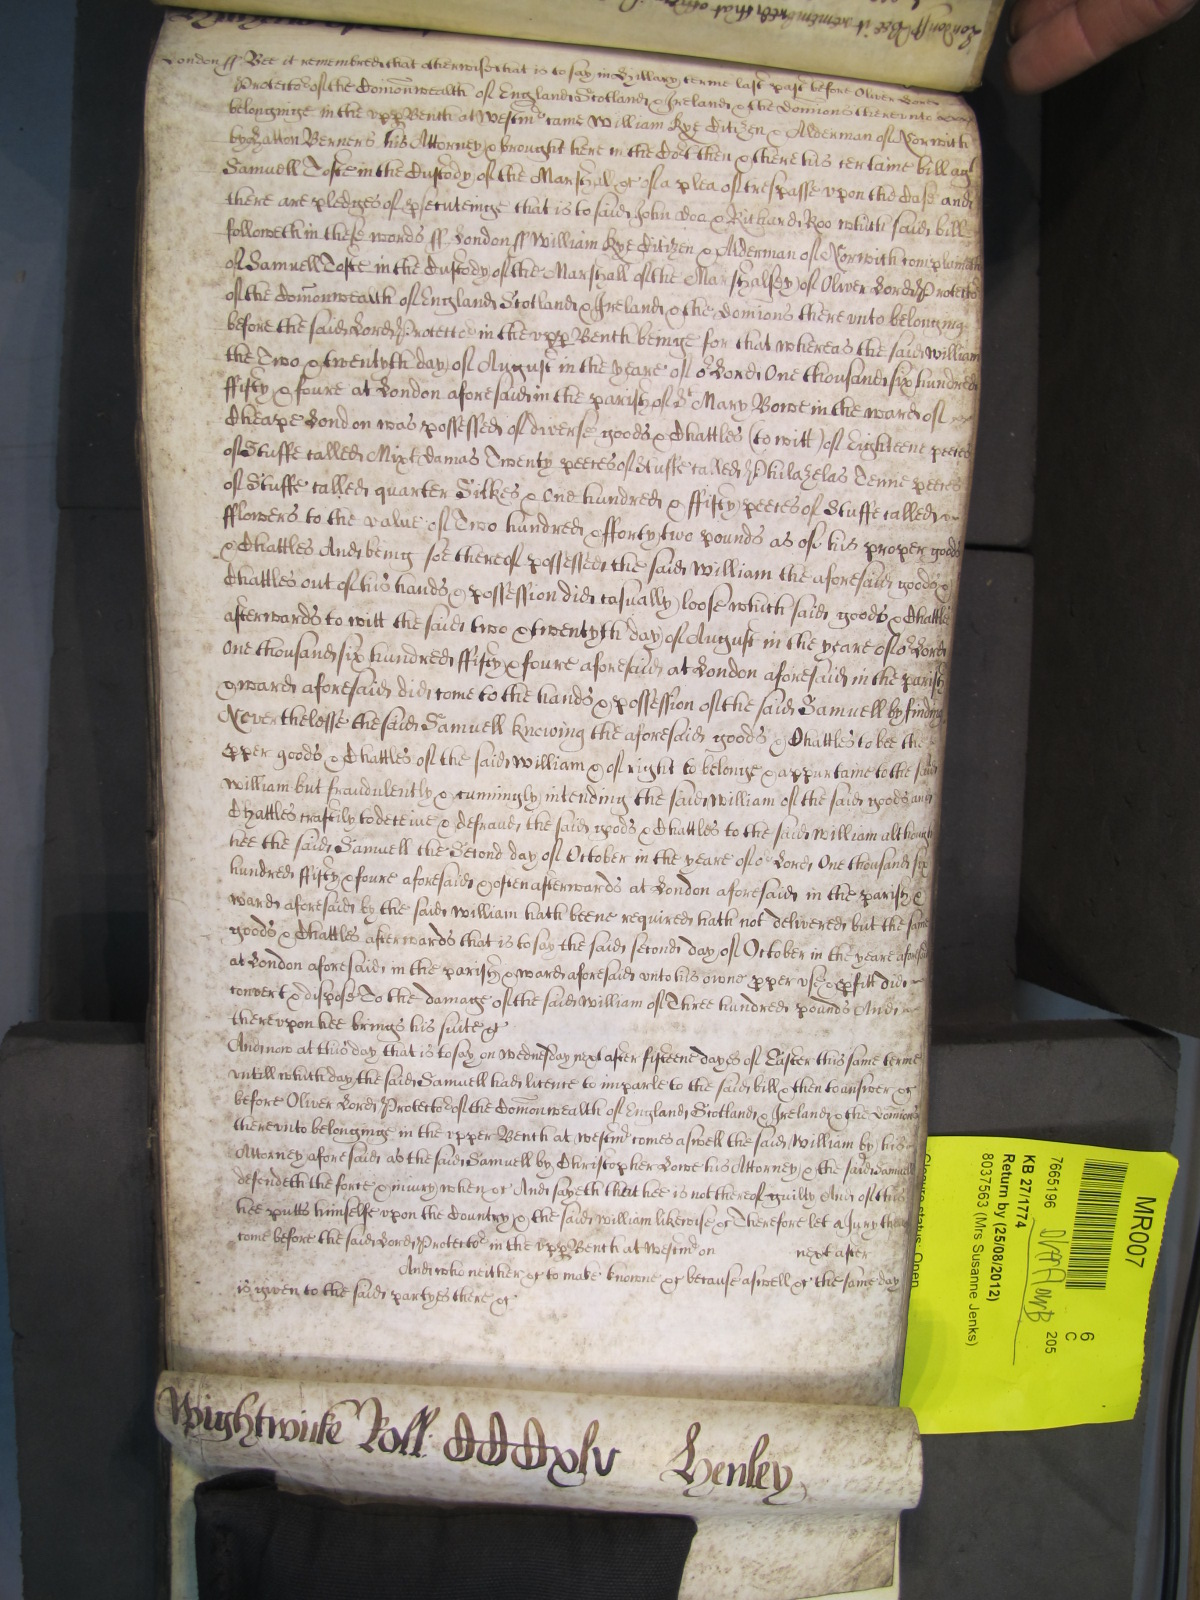 London ss Bee it remembred that otherwise that is to say in Hillary terme last past before Oliver Lord
Protector of the Com̄onwealth of England Scotland & Ireland & the Domions thereunto
belonginge in the upp Bench at Westmr came William Rye Citizen & Alderman of Norwich
by Hatton Berners his Attorney & brought here in the Cort then & there his certaine bill agt
Samuell Tofte in the Custody of the Marshal &c of a plea of trespasse upon the Case and
there are pledges of psecuteinge that is to said John Doa & Richard Roo which said bill
followeth in these words ss London ss William Rye Citizen & Alderman of Norwich complaineth
of Samuell Tofte in the Custody of the Marshall of the Marshalsey of Oliver Lord Protector
of the Com̄onwealth of England Scotland & Ireland & the Domions there unto belonging
before the said Lord Protector in the upp Bench beinge for that whereas the said William
the Two & twentyth day of August in the yeare of or Lord One thousand six hundred
ffifty & foure at London aforesaid in the parish of St Mary Bowe in the ward of
Cheape London was possessed of diverse goods & Chattles (to witt) of Eighteene peeces
of Stuffe called Mixt Damas Twenty peeces of Stuffe called Philazelas Tenne peeces
of Stuffe called quarter Silkes & One hundred & ffifty peeces of Stuffe called
fflowers to the value of Two hundred & fforty two pounds as of his proper goods
& Chattles And being soe thereof possessed the said William the aforesaid goods &
Chattles out of his hands & possession did casually loose which said goods & Chattles
afterwards to witt the said two & twentyth day of August in the yeare of or Lord
One thousand six hundred ffifty & foure aforesaid at London aforesaid in the parish
& ward aforesaid did come to the hands & possession of the said Samuell by finding
Neverthelesse the said Samuell knowing the aforesaid goods & Chattles to bee the
pper goods & Chattles of the said William & of right to belonge & appurtaine to the said
William but fraudulently & cunningly intending the said William of the said goods and
Chattles craftily to deceive & defraud the said goods & Chattles to the said William although
hee the said Samuell the Second day of October in the yeare of or Lord One thousand six
hundred ffifty & foure aforesaid & often afterwards at London aforesaid in the parish &
ward aforesaid by the said William hath beene required hath not delivered but the same
goods & Chattles afterwards that is to say the said second day of October in the yeare aforesaid
at London aforesaid in the parish & ward aforesaid unto his owne pper use & pfitt did
convert & dispose To the damage of the said William of Three hundred pounds And
thereupon hee brings his suite &c
And now at this day that is to say on Wednesday next after fifteene dayes of Easter this same terme
untill which day the said Samuell had licence to imparle to the said bill & then to answer &c
before Oliver Lord Protector of the Com̄onwealth of England Scotland & Ireland & the Domions
thereunto belonginge in the upper Bench at Westmr comes aswell the said William by his
Attorney aforesaid as the said Samuell by Christopher Lowe his Attorney & the said Samuell
defendeth the force & iniury when &c And sayeth that hee is not thereof guilty And of this
hee putts himselfe upon the Country & the said William likewise &c Therefore let a Jury there
come before the said Lord Protector in the upp Bench at Westmr on next after
And who neither &c to make knowne &c because aswell &c the same day
is given to the said partyes there &c
Wightwicke Roll CCCxlv Henley
MR007
6
C
205
7665196
KB 27/1774
Return by (25/08/2012)
8037563 (Mrs Susanne Jenks)
Closure status: Open